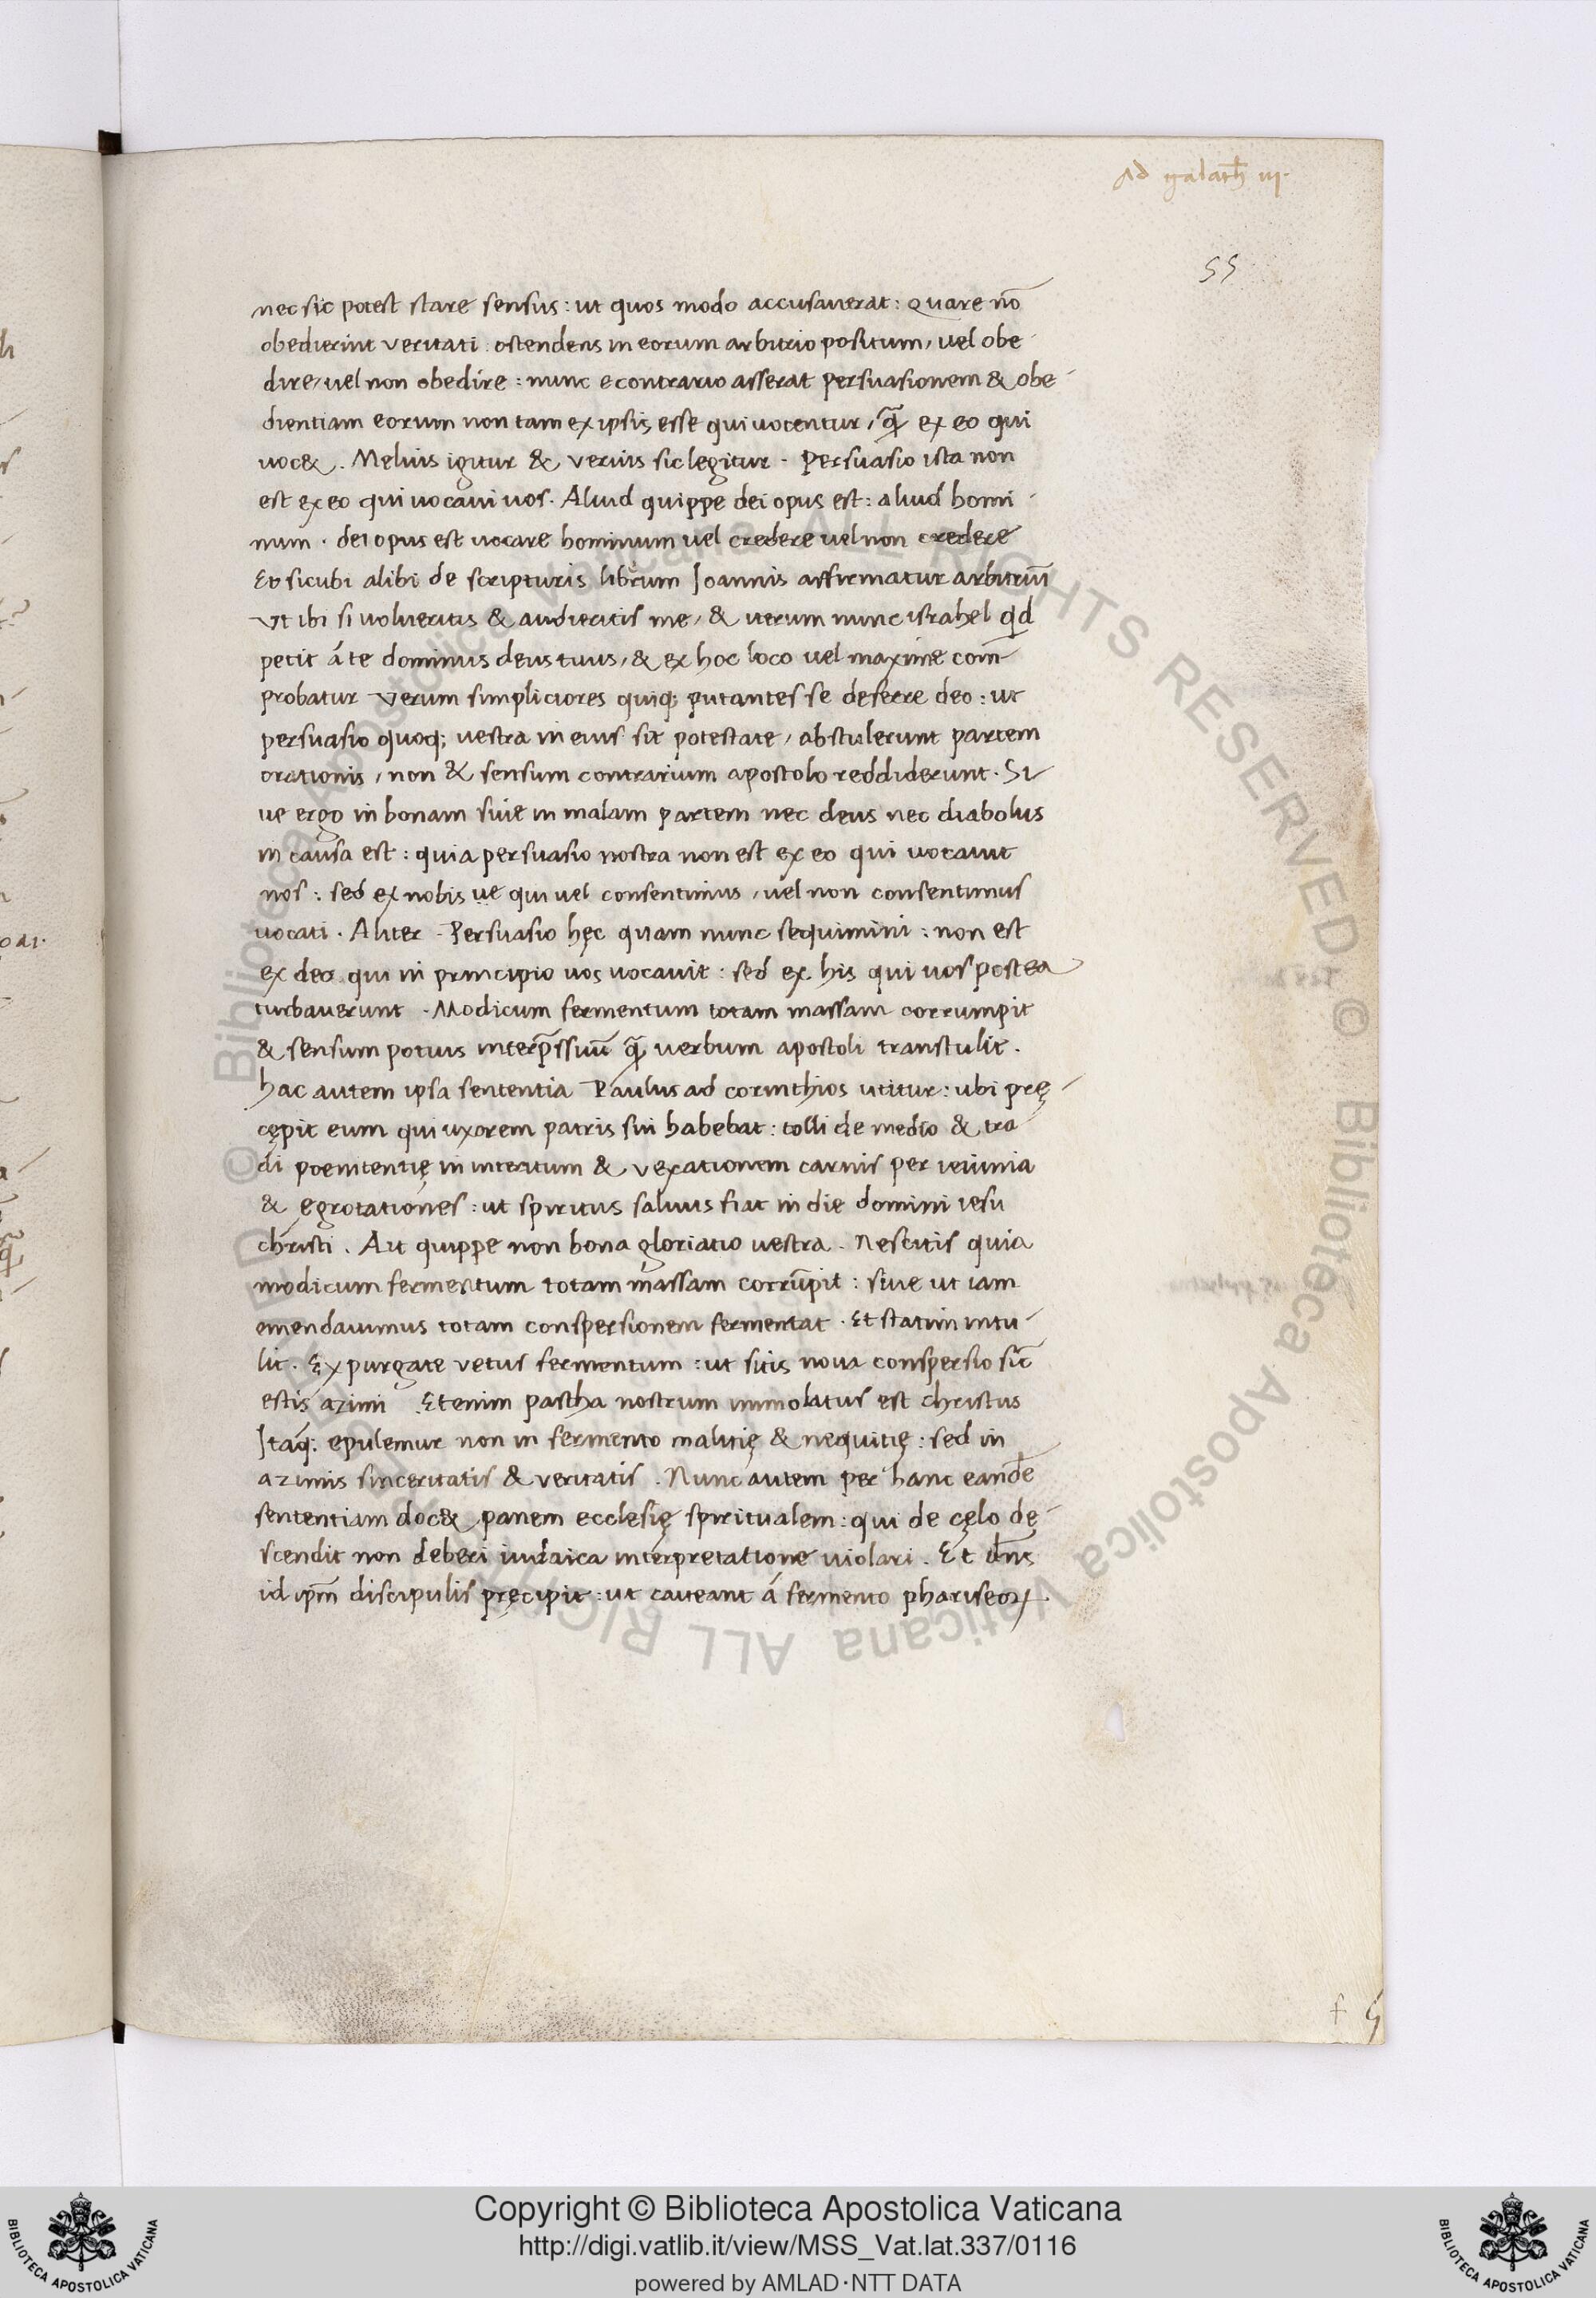 Ad galath̄ iij.
55
nec sic potest stare sensus: ut quos modo accusaverat: Quare nō
obedierint veritati. ostendens in eorum arbitrio positum, vel obe-
dire, vel non obedire: nunc econtrario asserat persuasionem & obe-
dientiam eorum non tam ex ipsis esse qui vocentur, q̄ ex eo qui
voc&. Melius igitur & verius sic legitur. Persuasio ista non
est ex eo qui vocavi vos. Aliud quippe dei opus est: aliud homi-
num. dei opus est vocare hominum vel credere vel non credere
Et sicubi alibi de scripturis librum Joannis affirmatur arbitriū
Ut ibi si volueritis & audieritis me, & iterum nunc israhel qd
petit á te dominus deus tuus, & ex hoc loco vel maxime com-
probatur Verum simpliciores quiq; putantes se deferre deo: ut
persuasio quoq; vestra in eius sit potestate, abstulerunt partem
orationis, non & sensum contrarium apostolo reddiderunt. Si-
ve ergo in bonam sive in malam partem nec deus nec diabolus
in causa est: quia persuasio nostra non est ex eo qui vocavit
nos: sed ex nobis ve qui vel consentimus, vel non consentimus
vocati. Aliter. Persuasio hęc quam nunc sequimini: non est
ex deo qui in principio vos vocavit: sed ex his qui vos postea
turbaverunt. Modicum fermentum totam massam corrumpit
& sensum potius interp̄ssiuū q̄ verbum apostoli transtulit.
hac autem ipsa sententia Paulus ad corinthios utitur: ubi prę-
cępit eum qui uxorem patris sui habebat: tolli de medio & tra-
di poenitentię in interitum & vexationem carnis per ieiunia
& egrotationes: ut spiritus salvus fiat in die domini iesu
christi. Ait quippe non bona gloriatio vestra. Nescitis quia
modicum fermentum totam massam corrūpit: sive ut iam
emendavimus totam conspersionem fermentat. Et statim intu-
lit. Expurgate vetus fermentum: ut sitis nova conspersio sic̄
estis azimi. Etenim pascha nostrum immolatus est christus
Jtaq: epulemur non in fermento malitię & nequitię: sed in
azimis sinceritatis & veritatis. Nunc autem per hanc eandē
sententiam doc& panem ecclesię spiritualem: qui de cęlo dę-
scendit non deberi iudaica interpretatione violari. Et dn̄s
id ip̄m discipulis pręcipit: ut caveant á fermento phariseoꝝ
f 5
© Biblioteca Apostolica Vaticana ALL RIGHTS RESERVED © Biblioteca Apostolica Vaticana ALL RIGHTS RESERVED
Copyright © Biblioteca Apostolica Vaticana
http://digi.vatlib.it/view/MSS_Vat.lat.337/0116
powered by AMLAD·NTT DATA
BIBLIOTECA APOSTOLICA VATICANA
BIBLIOTECA APOSTOLICA VATICANA